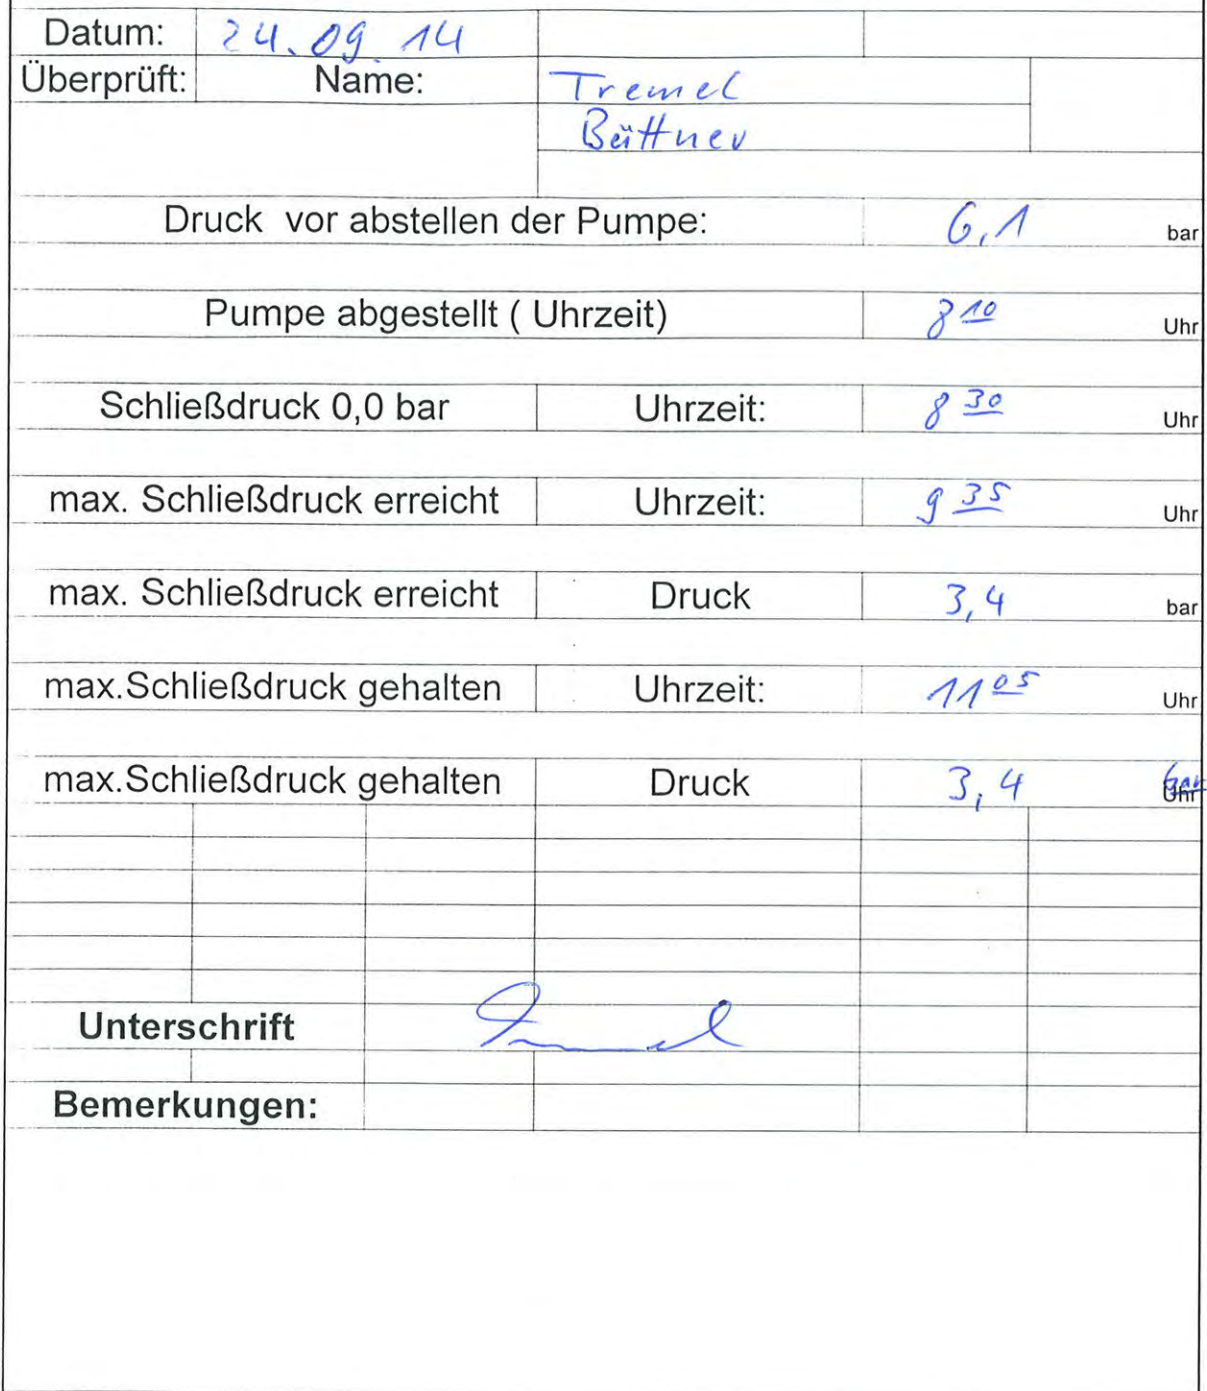 Datum: 24.09.14
Überprüft: Name: Tremel
Büttner
Druck vor abstellen der Pumpe: 6,1 bar
Pumpe abgestellt ( Uhrzeit) 8 10 Uhr
Schließdruck 0,0 bar Uhrzeit: 8 30 Uhr
max. Schließdruck erreicht Uhrzeit: 9 35 Uhr
max. Schließdruck erreicht Druck 3,4 bar
max.Schließdruck gehalten Uhrzeit: 11 05 Uhr
max.Schließdruck gehalten Druck 3,4 Uhr bar
Unterschrift
Bemerkungen: